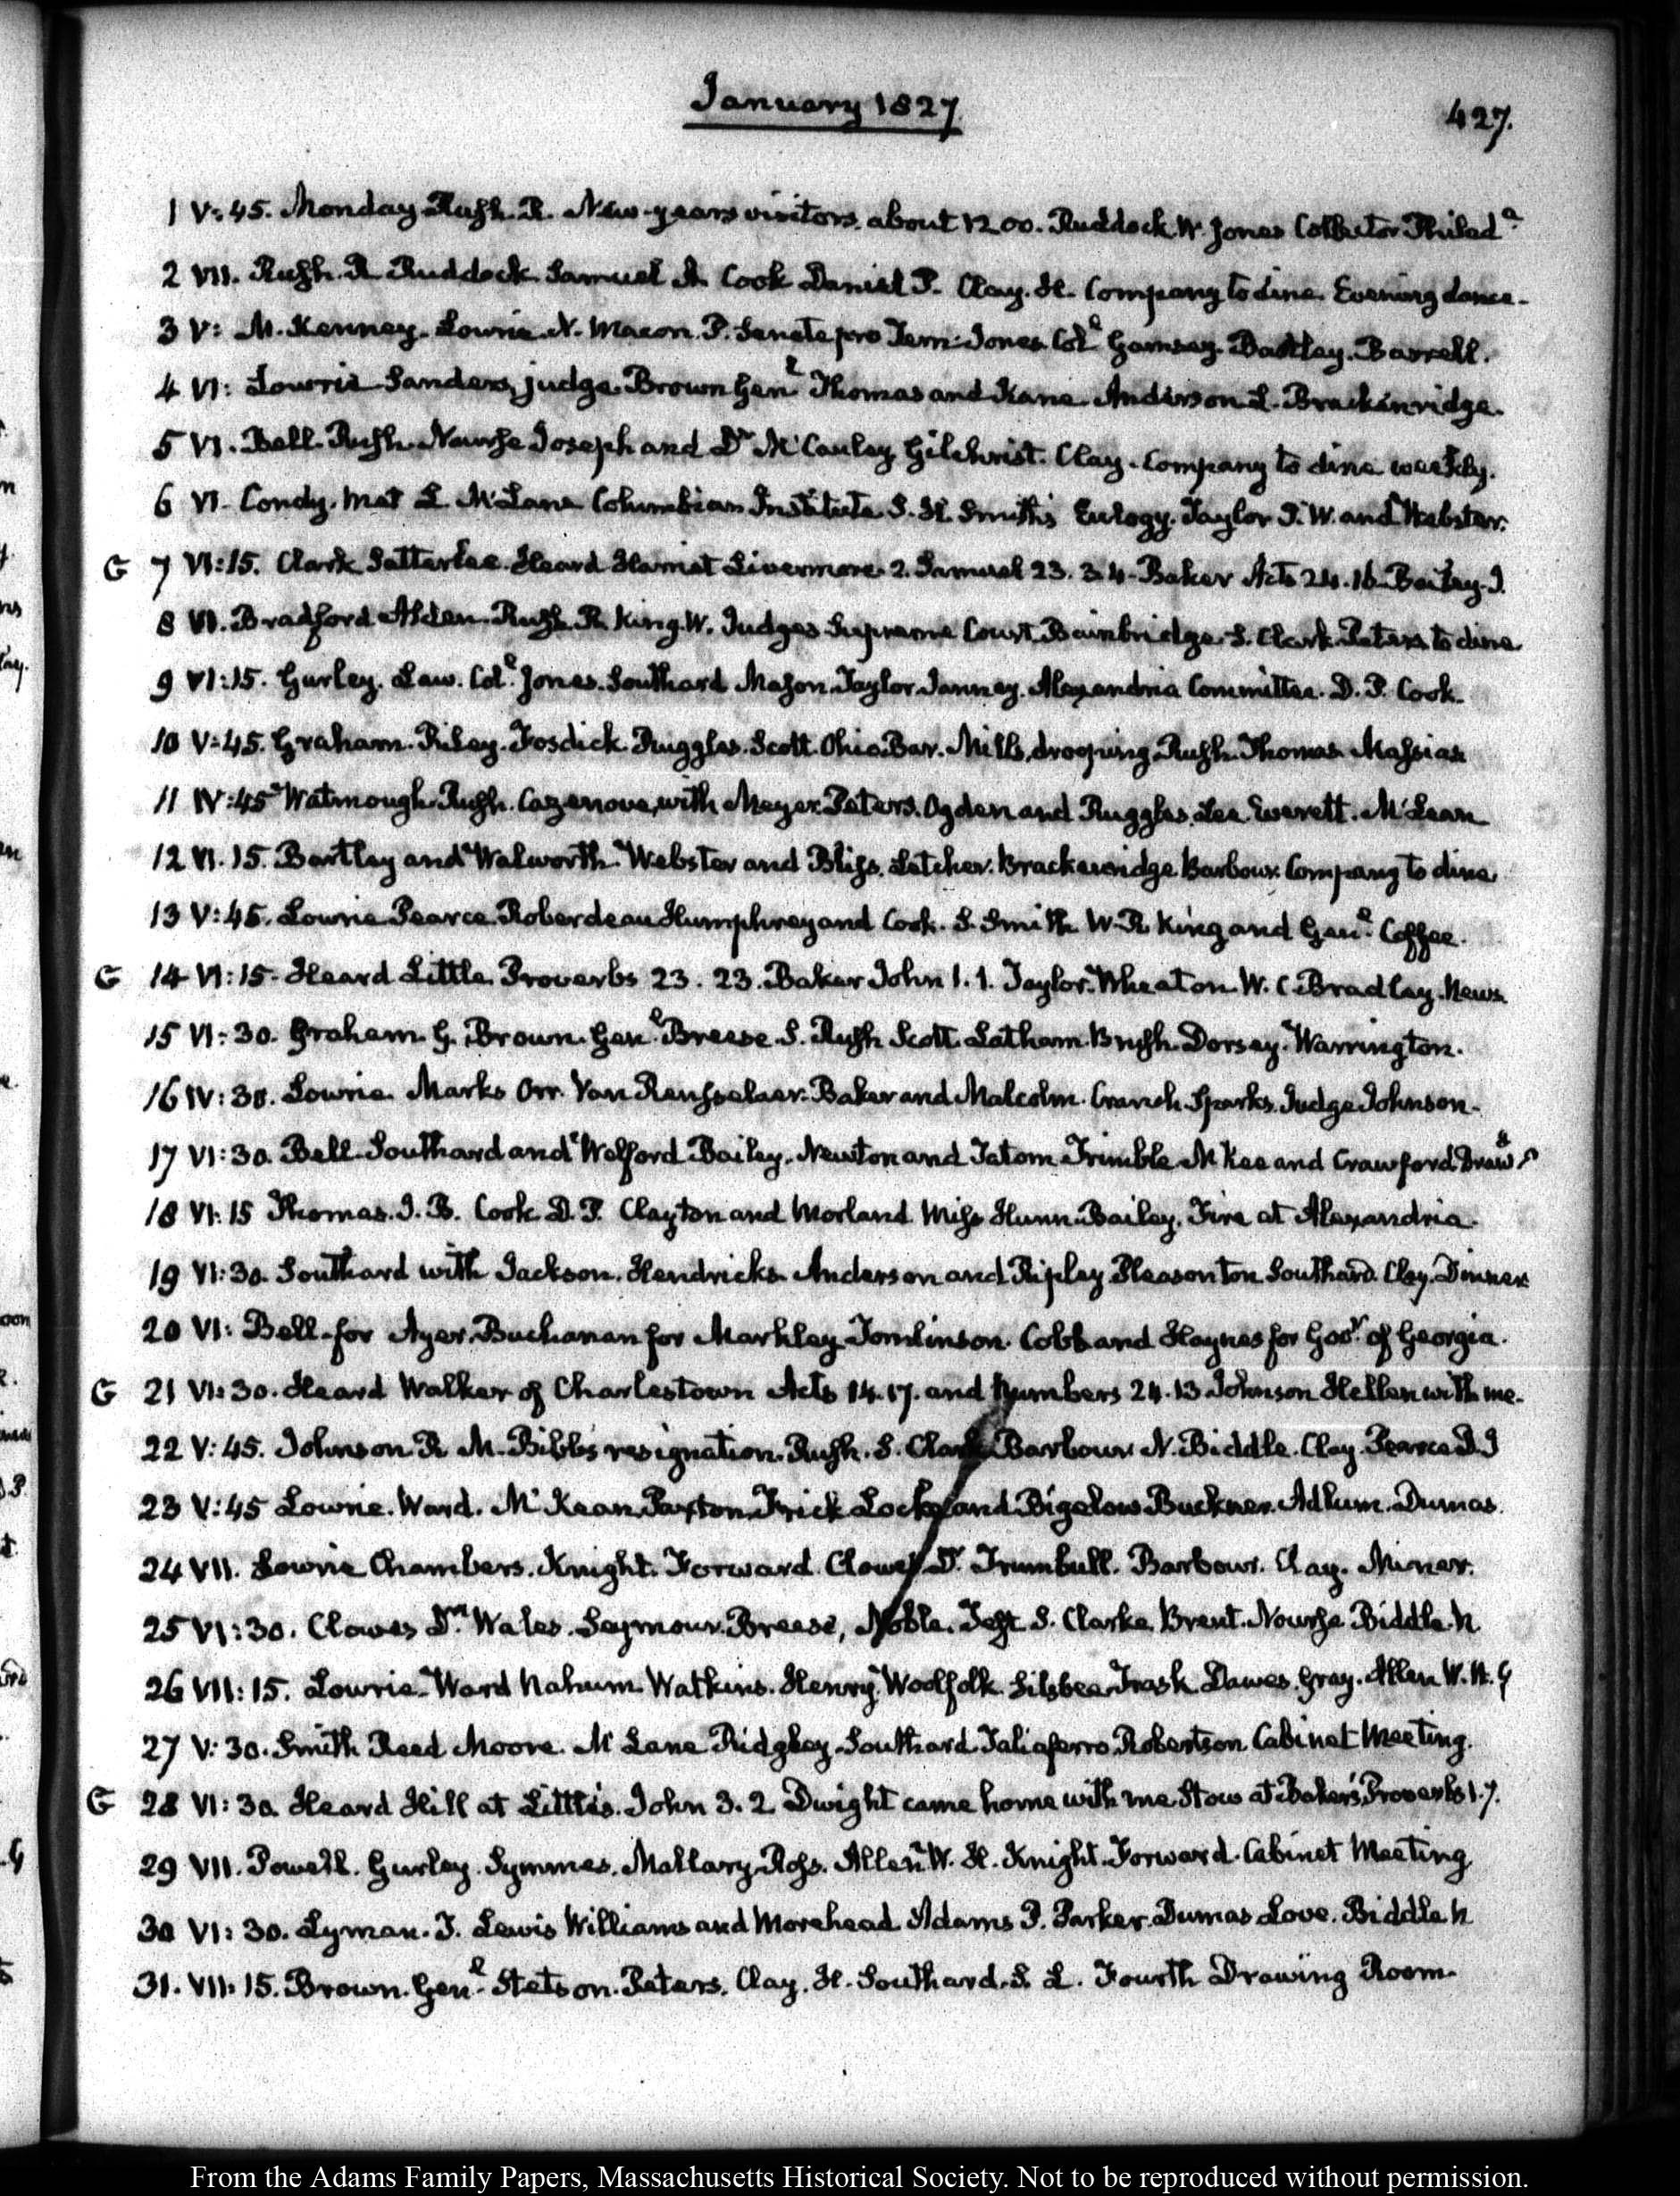 January 1827.
427.
1 V:45. Monday. Rush. R. New-years visitors. about 1200. Ruddock. W. Jones Collector Philad.ª
2 VII. Rush. R Ruddock Samuel A. Cook Daniel P. Clay. H. Company to dine. Evening dance.
3 V: M. Kenney. Lowrie. N. Macon. P. Senate pro Tem: Jones. Col.l Gamsey. Bartley. Barrell.
4 VI: Lowrie Sanders, judge. Brown Gen.l Thomas and Kane. Anderson. L. Brackenridge.
5 VI. Bell. Rush. Nourse Joseph and Dr. McCauley. Gilchrist. Clay. Company to dine weekly.
6 VI. Condy. met L. McLane Columbian Institute. S. H. Smith's Eulogy. Taylor J. W. and Webster.
G 7 VI:15. Clark. Satterlee. Heard Harriet Livermore. 2. Samuel 23. 3. 4. Baker Acts 24. 16. Bailey. J.
8 VI. Bradford Alden. Rush. R. King. W. Judges Supreme Court. Bainbridge. S. Clark. Peters. to dine
9 VI:15. Gurley. Law. Col.l Jones. Southard Mason. Taylor. Janney. Alexandria Committee. D. P. Cook.
10 V:45. Graham. Riley. Fosdick. Ruggles. Scott. Ohio Bar. Mills, drooping. Rush. Thomas. Massias
11 IV:45 Watmough. Rush. Cazenove, with Meyer. Peters. Ogden and Ruggles. Lee. Everett. McLean
12 VI. 15. Bartley and Walworth. Webster and Bliss. Letcher. Brackenridge. Barbour. Company to dine
13 V:45. Lowrie Pearce. Roberdeau Humphrey and Cook. S. Smith. W. R. King and Gen.l Coffee.
G 14 VI:15. Heard Little. Proverbs 23. 23. Baker John 1. 1. Taylor. Wheaton. W. C. Bradley. News.
15 VI:30. Graham. G. Brown. Gen.l Breese. S. Rush Scott. Latham. Brush. Dorsey. Warrington.
16 IV:30. Lowrie. Marks Orr. Van Rensselaer. Baker and Malcolm. Cranch. Sparks. Judge Johnson.
17 VI:30. Bell. Southard and Welford Bailey. Newton and Tatom Trimble McKee and Crawford
18 VI:15 Thomas. J. B. Cook. D. P. Clayton and Morland Miss Hunn. Bailey. Fire at Alexandria.
19 VI:30. Southard with Jackson. Hendricks. Anderson and Ripley Pleasonton Southard. Clay. Dinner
20 VI: Bell. for Ayer. Buchanan for Markley. Tomlinson. Cobb and Haynes for Gov.r of Georgia.
G 21 VI:30. Heard Walker of Charlestown Acts 14. 17. and Numbers 24. 13 Johnson Hellen with me.
22 V:45. Johnson R M. Bibb's resignation. Rush. S. Clark Barbour. N. Biddle. Clay. Pearce D. J
23 V:45 Lowrie. Ward. McKean. Paxton. Frick Locke and Bigelow. Buckner. Adlum. Dumas.
24 VII. Lowrie Chambers. Knight. Forward. Clowes Dr. Trumbull. Barbour. Clay. Miner.
25 VI:30. Clowes Dr. Wales. Seymour. Breese, Noble. Teft S. Clarke. Brent. Nourse. Biddle. N
26 VII:15. Lowrie. Ward Nahum. Watkins. Henry. Woolfolk. Silsbee Trask. Dawes. Gray. Allen W. H. G
27 V:30. Smith Reed Moore. McLane Ridgley. Southard. Taliaferro. Robertson. Cabinet Meeting.
G 28 VI:30. Heard Hill at Little's. John 3. 2 Dwight came home with me Stow at Baker's Proverbs 1. 7.
29 VII. Powell. Gurley. Symmes. Mallary. Ross. Allen W. H. Knight. Forward. Cabinet Meeting
30 VI:30. Lyman. T. Lewis Williams and Morehead Adams P. Parker. Dumas. Love. Biddle. N
31. VII:15. Brown. Gen.l Stetson. Peters. Clay. H. Southard. S. L. Fourth Drawing Room.
From the Adams Family Papers, Massachusetts Historical Society. Not to be reproduced without permission.